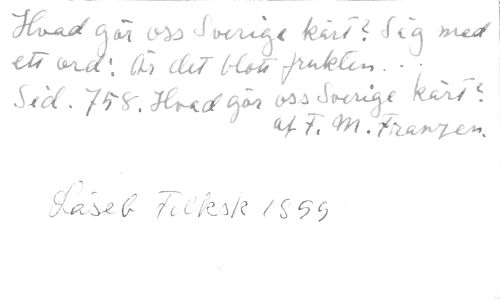 Hvad gör oss Sverige kärt? Säg med
ett ord: Är det blott frukten...
Sid. 758. Hvad gör oss Sverige kärt?
af F. M. Franzen.
Läseb Folksk 1899